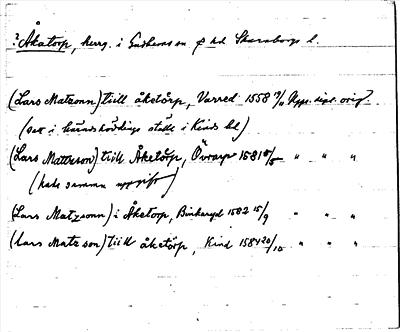 ? Åketorp, herrg. i Gudhems sn o hd Skaraborgs l.
(Lars Matzonn) tiill åketörp, Varred 1558 Upps. dipl. orig.
(sat i häradshövdings ställe i Kinds hd)
(Lars Mattsson) tiill Åketöp, Övrarp 1581 " " "
(hade samma uppgift)
(Lars Matzsonn) i Åketorp, Binkeryd 1582 15/9 " " "
(Lars Matzson) tiill åketörp, Kind 1584 20/10 " " "